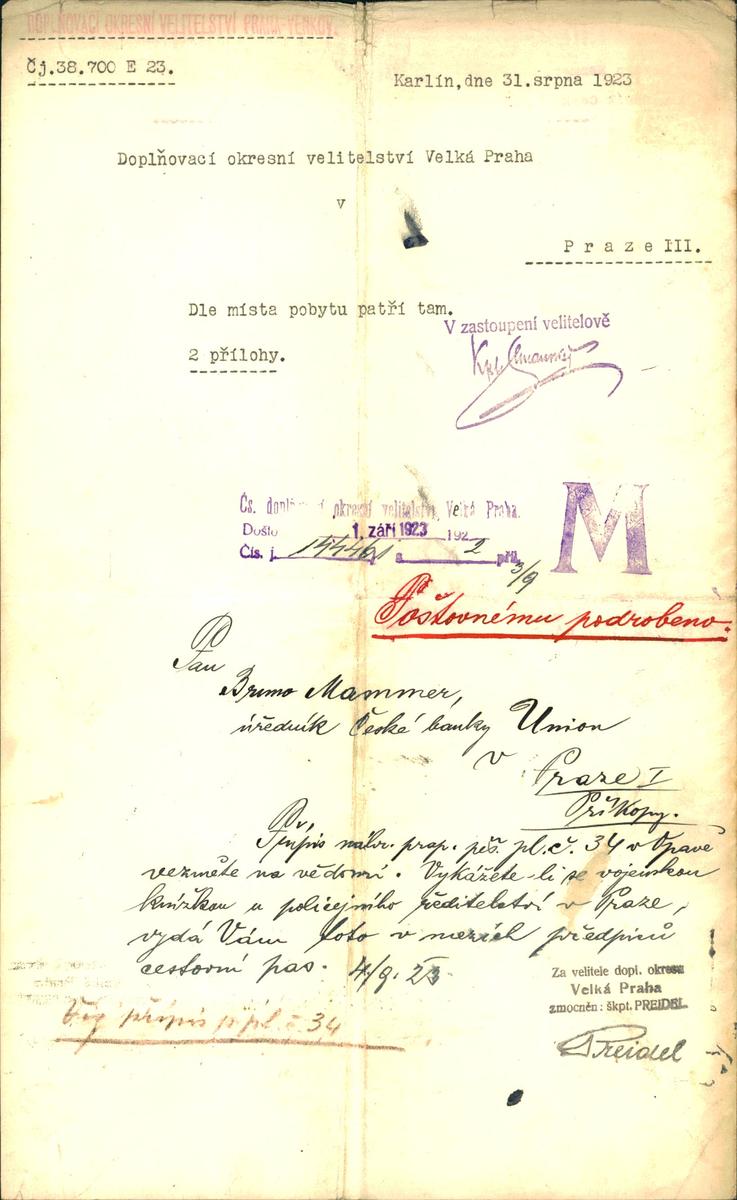 DOPLŇOVACÍ OKRESNÍ VELITELSTVÍ PRAHA-VENKOV.
Čj.38.700 E 23.
Karlín, dne 31.srpna 1923
Doplňovací okresní velitelství Velká Praha
v
Praze III.
Dle místa pobytu patří tam.
V zastoupení velitelově
2 přílohy.
Kpt.
Čs. doplňovací okresní velitelství, Velká Praha.
Došlo 1. září 1923 192
Čís. j. 154461 s 2 příl.
3/9
M
Poštovnému podrobeno.
Pan
Bruno Mammer,
úředník České banky Union
v
Praze I
Příkopy.
Přípis náhr. prap. pěš. pl. č. 34 v Opavě
vezměte na vědomí. Vykážete-li se vojenskou
knížkou u policejního ředitelství v Praze,
vydá Vám toto v mezích předpisů
cestovní pas. 4/9. 23
Za velitele dopl. okresu
Velká Praha
zmocněn: škpt. PREIDEL
Preidel
přípis p. pl. č. 34